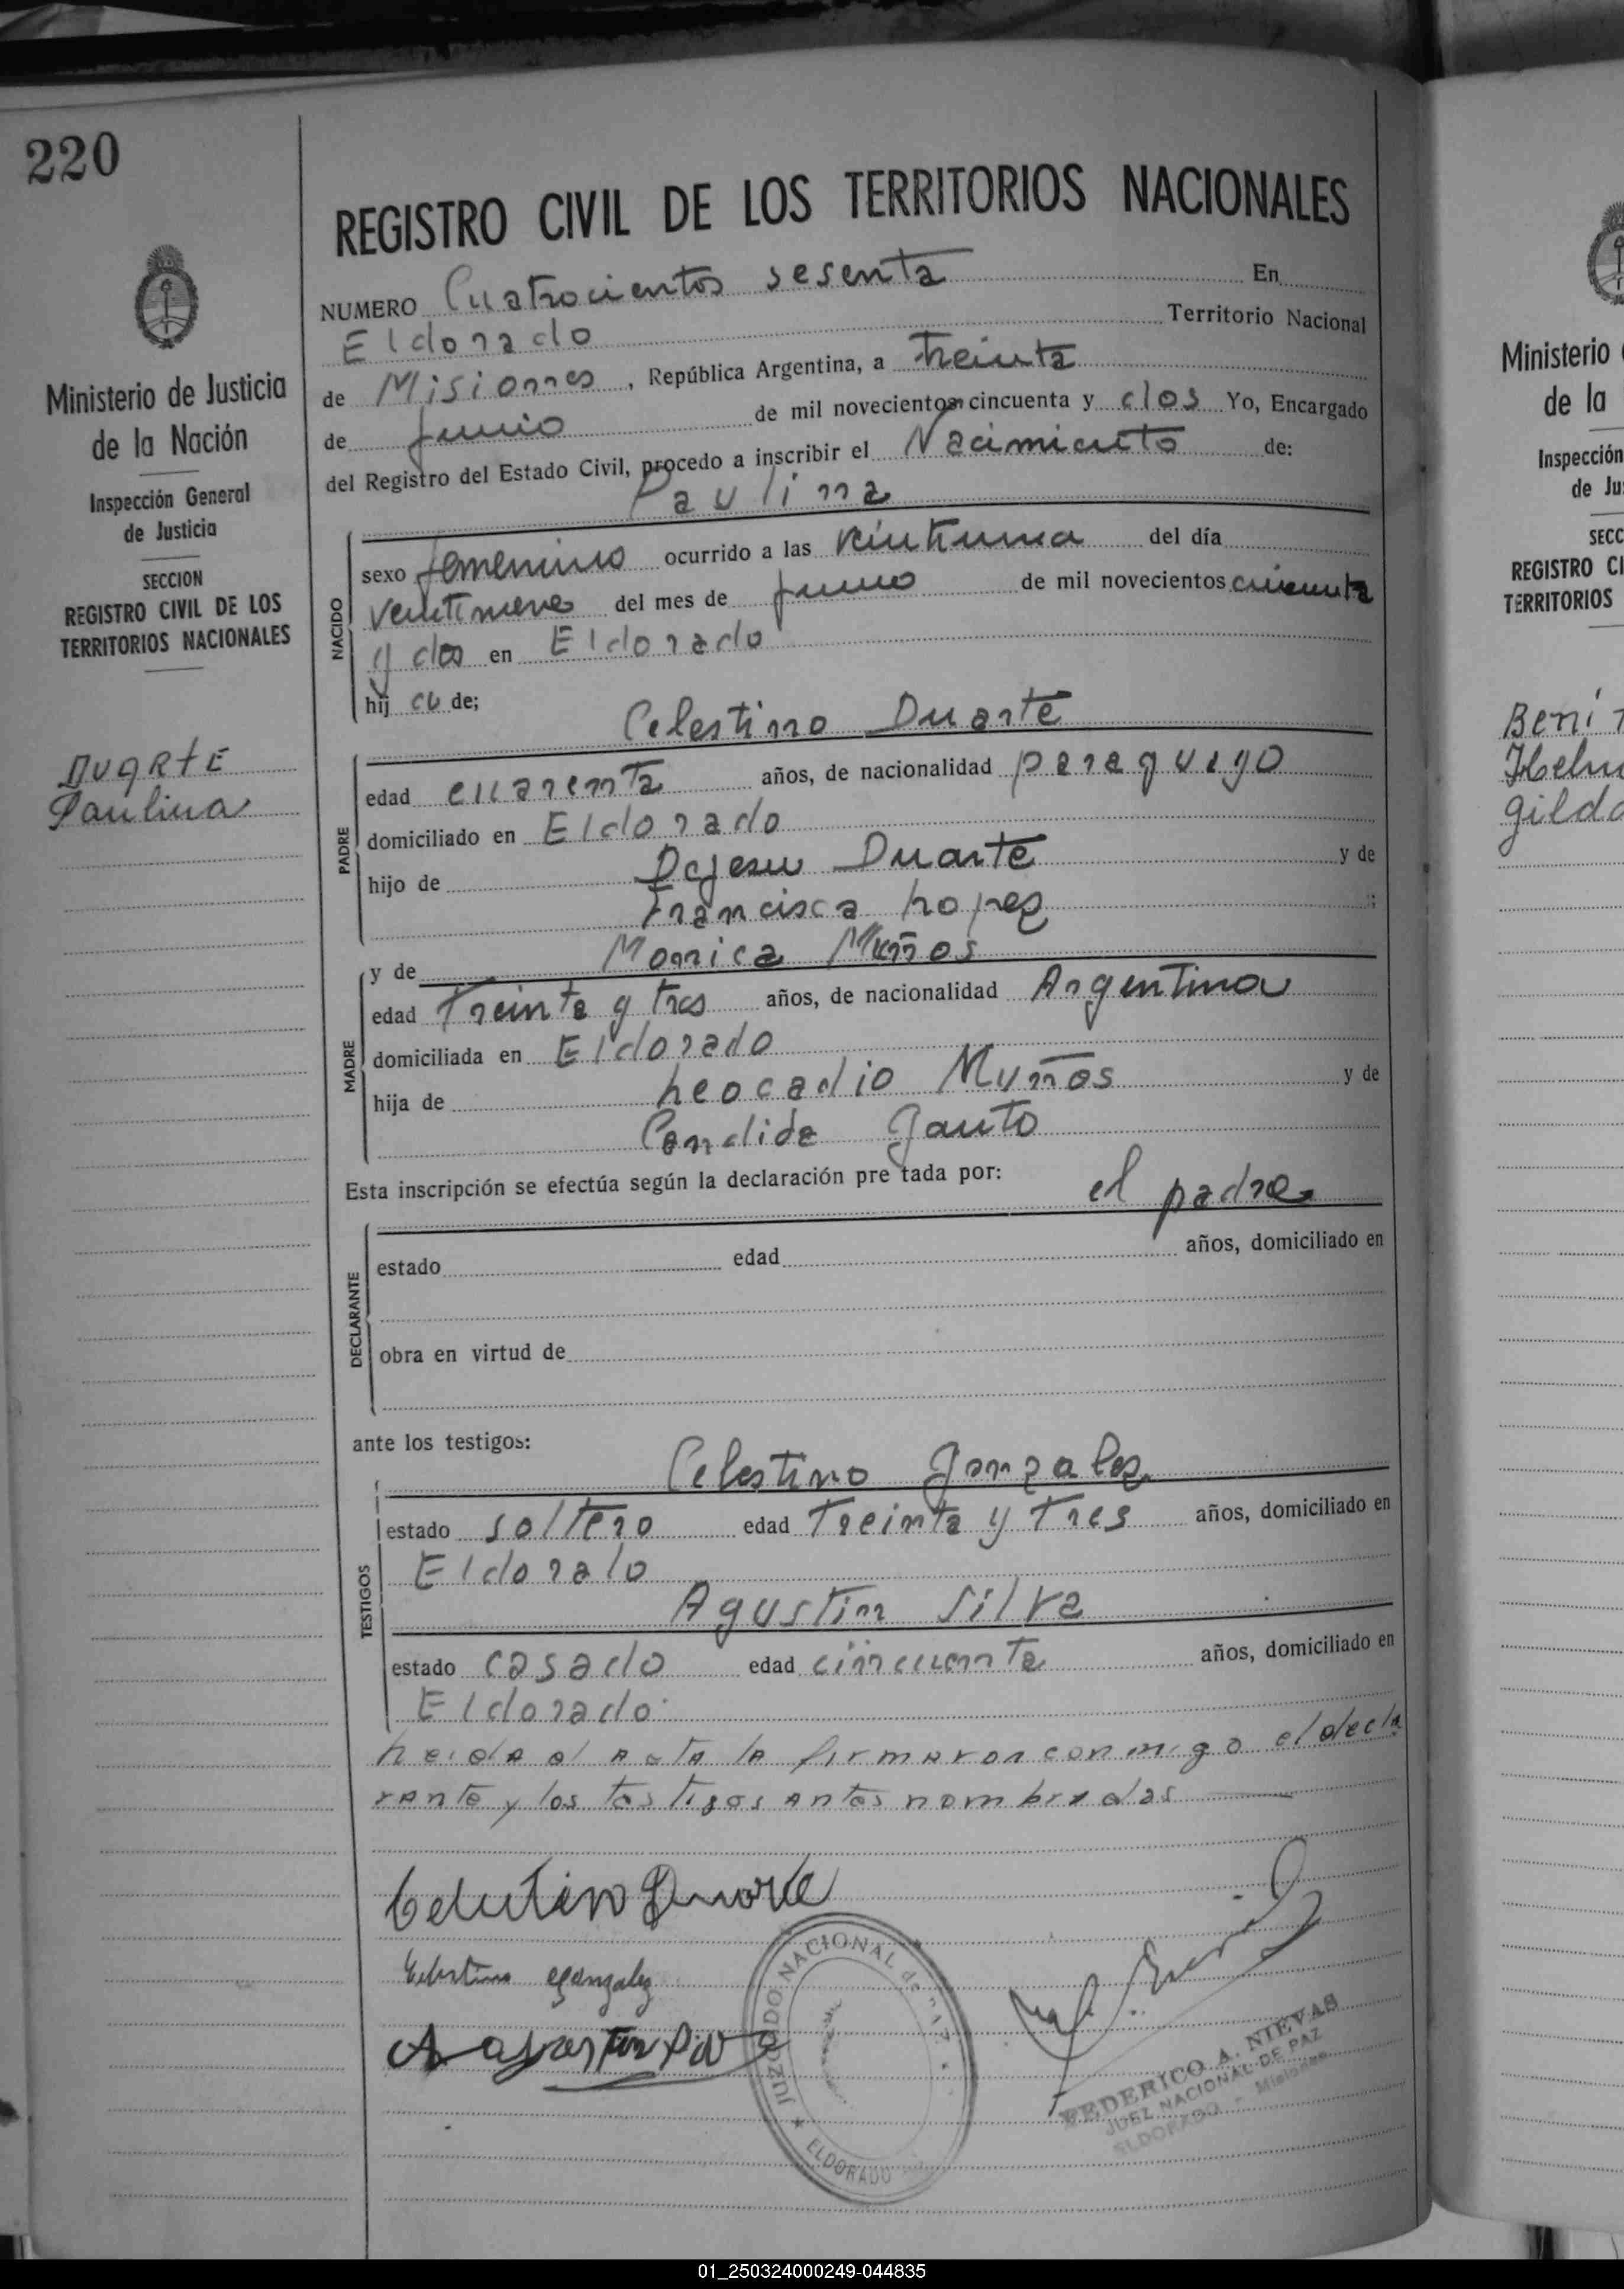 220
REGISTRO CIVIL DE LOS TERRITORIOS NACIONALES
Ministerio de Justicia
de la Nación
Inspección General
de Justicia
SECCION
REGISTRO CIVIL DE LOS
TERRITORIOS NACIONALES
DUARTE
Paulina
NUMERO Cuatrocientos sesenta En
Eldorado Territorio Nacional
de Misiones, República Argentina, a treinta
de junio de mil novecientos cincuenta y dos Yo, Encargado
del Registro del Estado Civil, procedo a inscribir el Nacimiento de:
Paulina
NACIDO
sexo femenino ocurrido a las del día
del mes de junio de mil novecientos
y dos en Eldorado
hij a de;
Celestino Duarte
PADRE
edad cuarenta años, de nacionalidad paraguayo
domiciliado en Eldorado
hijo de Dejesu Duarte y de
Francisca Lopez
MADRE
y de Monica Muños
edad Treinta y tres años, de nacionalidad Argentina
domiciliada en Eldorado
hija de Leocadio Muños y de
Candida
Esta inscripción se efectúa según la declaración pre tada por: el padre
DECLARANTE
estado edad años, domiciliado en
obra en virtud de
ante los testigos:
Celestino Gonzalez
TESTIGOS
estado soltero edad Treinta y Tres años, domiciliado en
Eldorado
Agustin Silva
estado casado edad cincuenta años, domiciliado en
Eldorado.
Leida el acta la firmaron conmigo el decla
rante y los testigos antes nombrados
Celestino Duarte
Celestino Gonzalez
JUZGADO NACIONAL de PAZ
ELDORADO
FEDERICO A. NIEVAS
JUEZ NACIONAL DE PAZ
ELDORADO - Misiones
Ministerio
de la
Inspección
de Ju
SECC
REGISTRO CI
TERRITORIOS
01_250324000249-044835